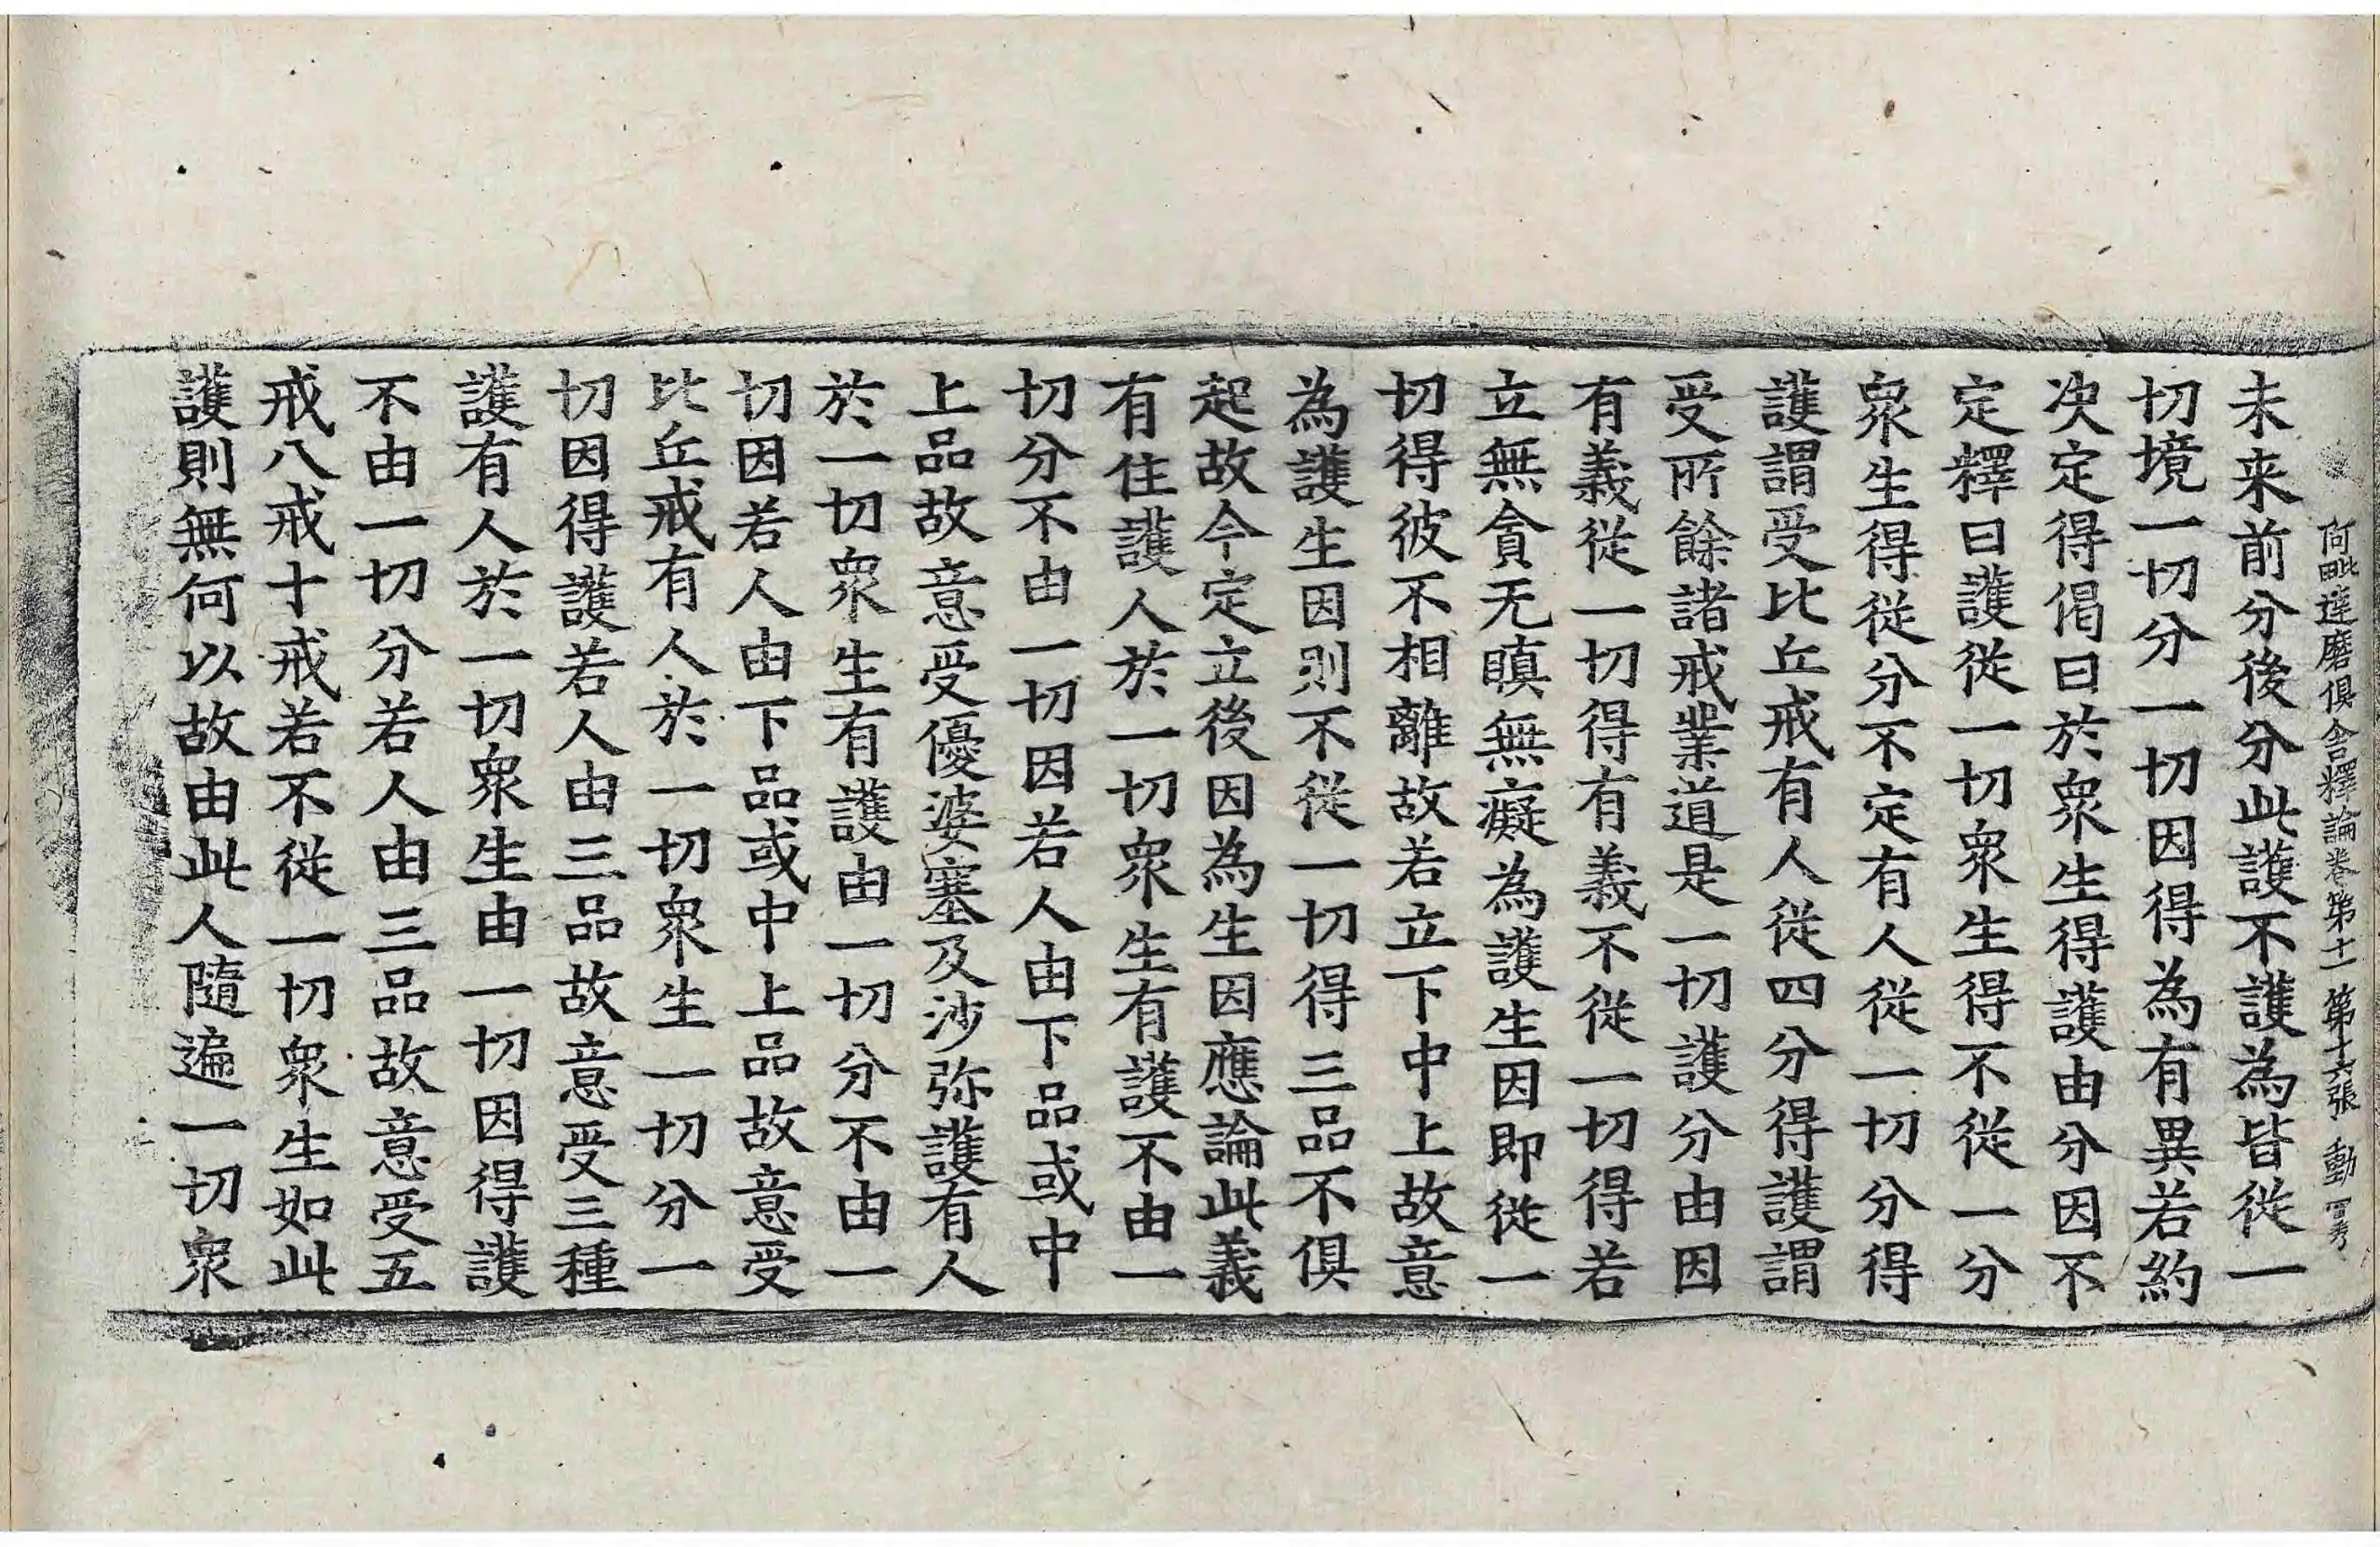 阿毗達磨俱舍釋論卷第十一 第十六張 動
未来前分後分此護不護為皆從一
切境一切分一切因得為有異若約
决定得偈曰於衆生得護由分因不
定釋曰護從一切衆生得不從一分
衆生得從分不定有人從一切分得
護謂受比丘戒有人從四分得護謂
受所餘諸戒業道是一切護分由因
有義從一切得有義不從一切得若
立無貪无瞋無癡為護生因即從一
切得彼不相離故若立下中上故意
為護生因則不從一切得三品不俱
起故今定立後因為生因應論此義
有住護人於一切衆生有護不由一
切分不由一切因若人由下品或中
上品故意受優婆塞及沙弥護有人
於一切衆生有護由一切分不由一
切因若人由下品或中上品故意受
比丘戒有人於一切衆生一切分一
切因得護若人由三品故意受三種
護有人於一切衆生由一切因得護
不由一切分若人由三品故意受五
戒八戒十戒若不從一切衆生如此
護則無何以故由此人隨遍一切衆